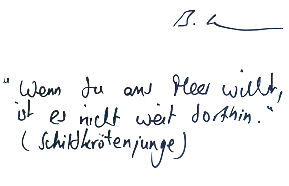 "Wenn du ans Meer willst,
ist es nicht weit dorthin."
(Schildkrötenjunge)